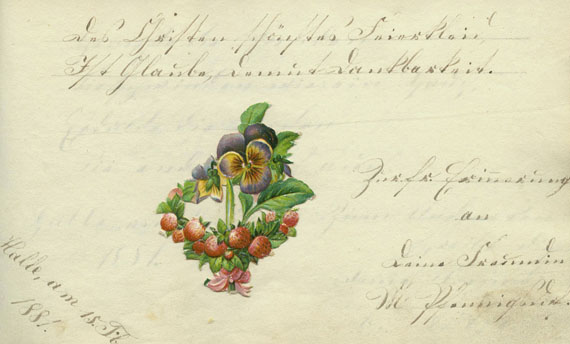 Des Christen schönstes Feierkleid
Ist Glaube, Demut Dankbarkeit.
Zur Erinnerung
an
Deine Freundin
M
Halle, am 15.
1881.